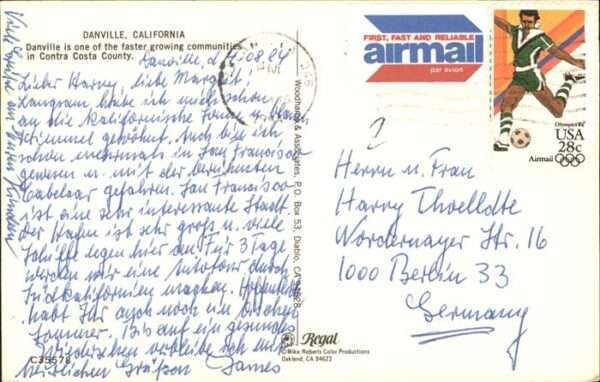 DANVILLE, CALIFORNIA
Danville is one of the faster growing communities
in Contra Costa County.
Danville, d. .08.84
Lieber Harry, liebe Margrit!
Langsam habe ich mich schon
an die kalifornische Sonne u.
Himmel gewöhnt. Auch bin ich
schon mehrmals in San Francisco
gewesen u. mit der berühmten
Cabelcar gefahren. San Francisco
ist eine sehr interessante Stadt.
Der Hafen ist sehr groß u. viele
Schiffe legen hier an. Für 3 Tage
werden wir eine Autotour durch
Südkalifornien machen. Hoffentlich
habt Ihr auch noch ein bischen
Sommer. Bis auf ein gesundes
Wiedersehen verbleibe ich mit
herzlichen Grüßen James
Viele Grüße an
C35578
Woodhands & Associates, P.O. Box 53, Diablo, CA 94528
Regal
©Mike Roberts Color Productions
Oakland, CA 94623
FIRST, FAST AND RELIABLE
airmail
par avion
Olympics 84
USA
28c
Airmail
Herrn u. Frau
Harry Thoelldte
Nordernayer Str. 16
1000 Berlin 33
Germany